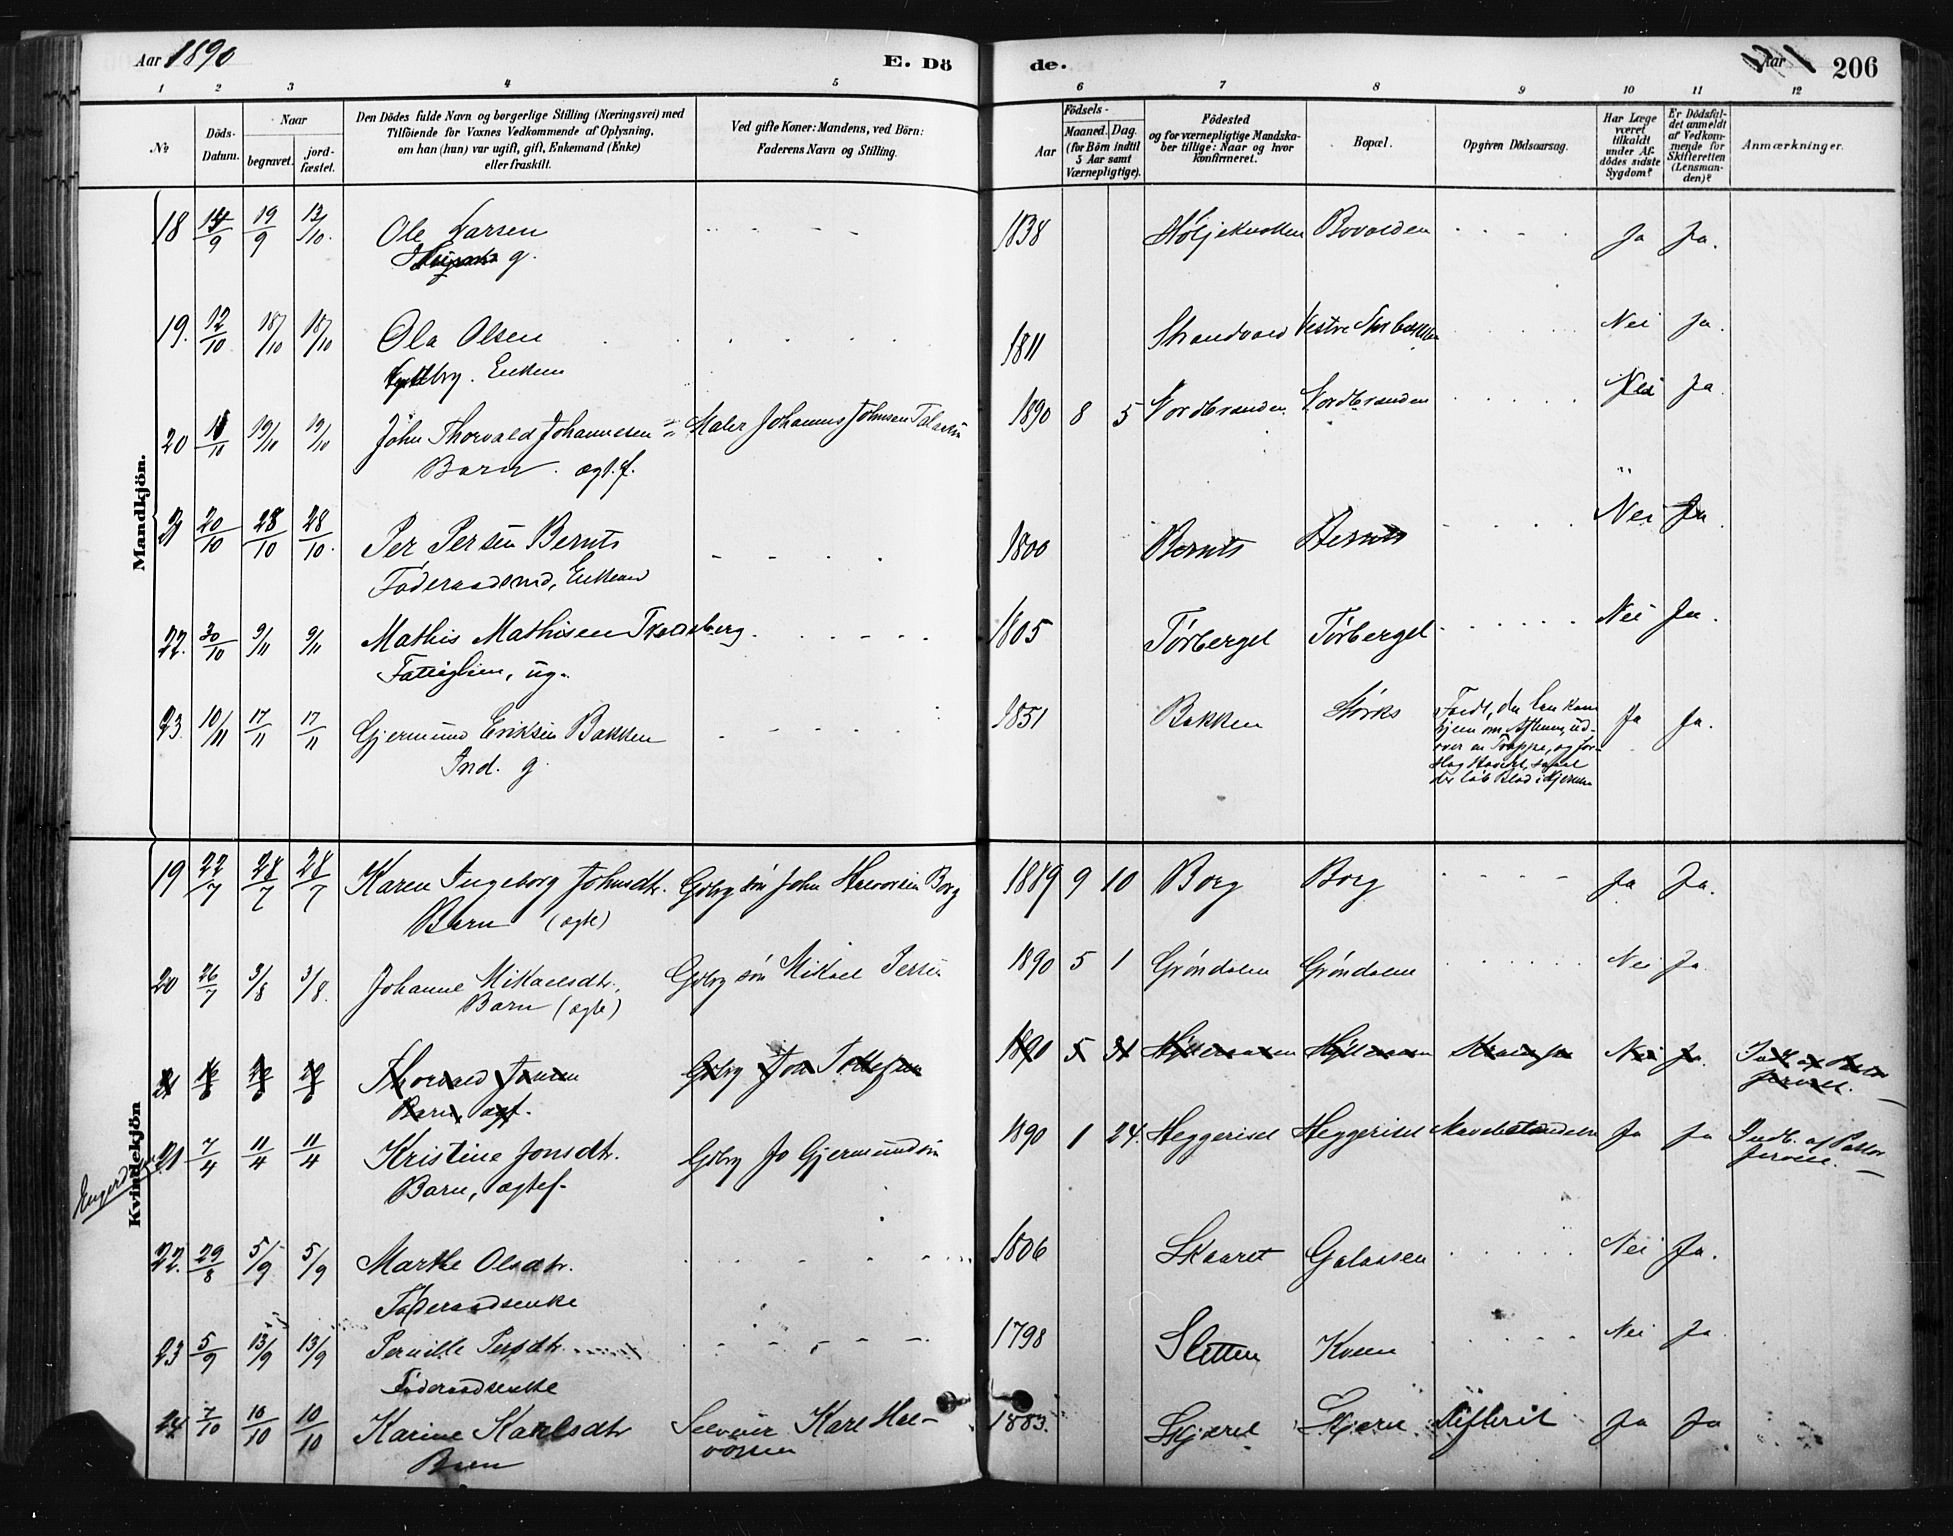 Aar 1890
E. Dö
de.
Aar
206
1 2 3 4 5 6 7 8 9 10 11 12
No
Döds-
Datum.
Naar
begravet.
jord-
fæstet.
Den Dödes fulde Navn og borgerlige Stilling (Næringsvei) med
Tilföiende for Voxnes Vedkommende af Oplysning,
om han (hun) var ugift, gift, Enkemand (Enke)
eller fraskilt.
Ved gifte Koner: Mandens, ved Börn:
Faderens Navn og Stilling.
Aar
Födsels-
Maaned. Dag.
(for Börn indtil
5 Aar samt
Værnepligtige).
Födested
og for værnepligtige Mandska-
ber tillige: Naar og hvor
konfirmeret.
Bopæl.
Opgiven Dödsaarsag.
Har Læge
været
tilkaldt
under Af-
dödes sidste
Sygdom?
Er Dödsfal-
det anmeldt
af Vedkom-
mende for
Skifteretten
(Lensman-
den)?
Anmærkninger.
Mandkjön.
18 14/9 19/9 13/10 Ole Larsen 1838 Ja Ja.
g.
19. 12/10 18/10 18/10 Ola Olsen 1811 Strandvold Vestre Nei Ja.
Enkem
20 11/10 19/10 19/10 John Thorvald Johannesen Maler Johannes Johnsen 1890 8 5 Nordbranden Nordbranden Nei Ja
Barn. ægt. f.
21 20/10 28/10 28/10 Per Persen Bernts 1800 Bernts Bernts Nei Ja
Föderaadsmd, Enkem
22. 30/10 9/11 9/11 Mathis Mathisen 1805 Törberget Törberget Nei Ja.
Fattiglem, ug.
23. 10/11 17/11 17/11 Gjermund Eriksen Bakken 1851 Bakken Störks Faldt, da han kom
hjem om Aftenen, ud-
over en Trappe, og for-
slog Hovedet, saaat
der løb Blod i Hjernen Ja Ja.
Ind. g.
Kvindekjön
19 22/7 28/7 28/7 Karen Ingeborg Johnsdtr. Gbrg sön John Halvorsen Borg 1889 9 10 Borg Borg Ja Ja.
Barn (ægte)
20 26/7 3/8 3/8. Johanne Mikaelsdtr. Gbrg sön Mikael 1890 5 1 Gröndalen Gröndalen Nei Ja.
Barn (ægte)
21 Thorvald Jonsen Gbrg Jon Tollefsen 1890 5 31 Nei Ja. Indb. af Pastor
Jervell.
Barn, ægt.
21 7/4 11/4 11/4 Kristine Jonsdtr. Gbrg Jo Gjermundsön 1890 1 24. Heggeriset Heggeriset Ja Ja Indb. af Pastor
Jervell.
Barn, ægtef.
22. 29/8 5/9 5/9 Marthe Olsdtr. 1806 Skaaret Galaasen Nei Ja.
Föderaadsenke
23 5/9 13/9 13/9 Pernille Persdtr. 1798 Sletten Kveen Nei Ja
Föderaadsenke
24 7/10 10/10 10/10 Karine Karlsdtr Selveier Karl Hal-
vorsen 1883. Skjæret Difterit Ja Ja
Barn